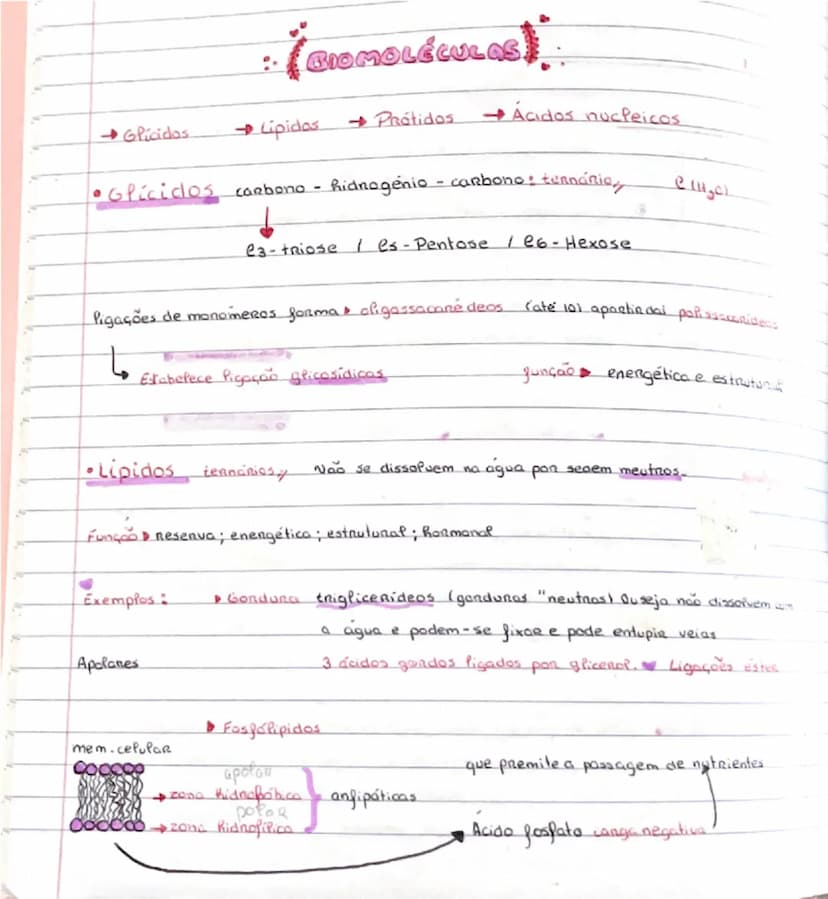 (BIOMOLÉCULAS)
→ Glícidos → Lípidos → Prótidos → Ácidos nucleicos
• Glícidos carbono - hidrogénio - carbono: ternário,, C (H₂O)
C3-triose / C5-Pentose / C6-Hexose
ligações de monómeros forma ▸ oligossacarédeos (até 10) apartindai polissacarídeos
Estabelece ligação glicosídicas função ▸ energética e estrutural
• Lípidos ternários,, Não se dissolvem na água por serem meutros.
Função ▸ reserva; energética; estrutural; hormonal
Exemplos: ▸ Gordura triglicerídeos (gorduras "neutras) Ou seja não dissolvem
a água e podem-se fixar e pode entupir veias
Apolares 3 ácidos gordos ligados por glicerol. ♥ Ligações éster
▸ Fosfólipidos
mem. celular
apolar que premite a passagem de nutrientes
→ zona hidrofóbica } anfipáticas
polar
→ zona hidrofílica Ácido fosfato carga negativa